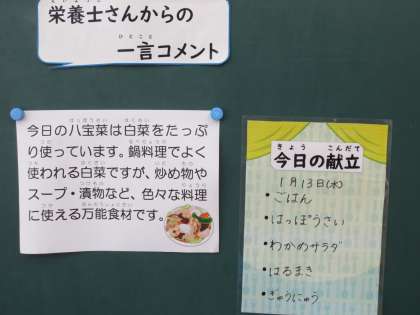 栄養士さんからの
一言コメント
今日の八宝菜は白菜をたっぷ
り使っています。鍋料理でよく
使われる白菜ですが、炒め物や
スープ・漬物など、色々な料理
に使える万能食材です。
きょう こんだて
今日の献立
1月13日(水)
・ごはん
・はっぽうさい
・わかめサラダ
・はるまき
・ぎゅうにゅう